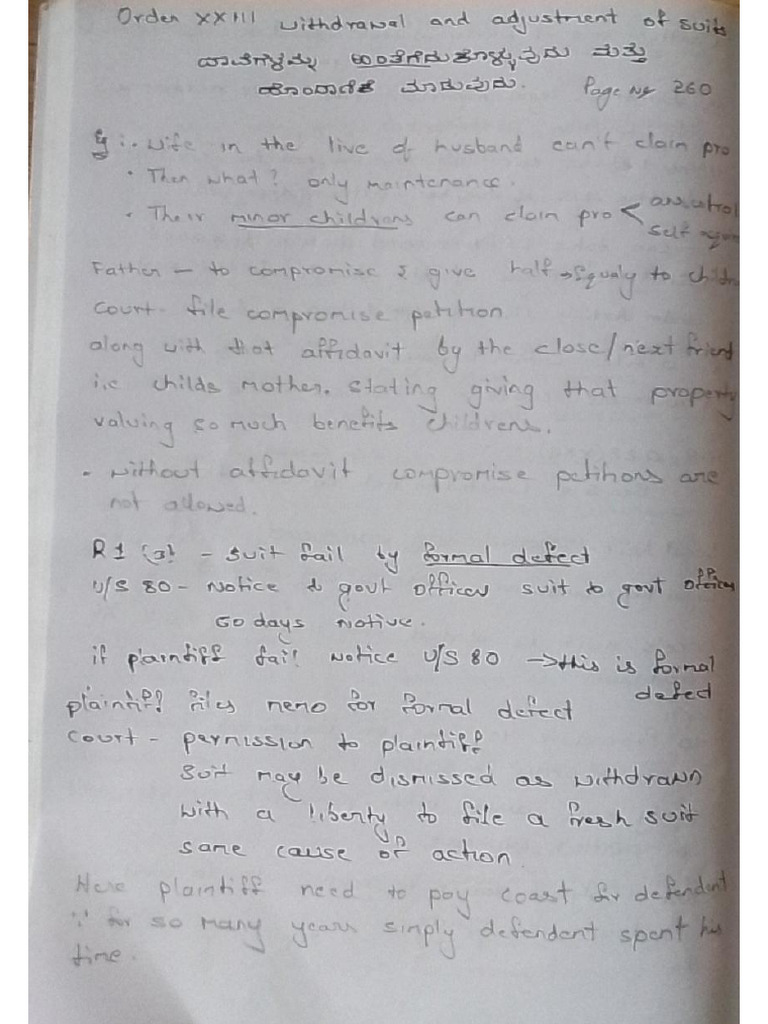 Order XXIII withdrawal and adjustment of suits
ದಾವೆಗಳನ್ನು ಹಿಂತೆಗೆದುಕೊಳ್ಳುವುದು ಮತ್ತು
ಹೊಂದಾಣಿಕೆ ಮಾಡುವುದು. Page No 260
Eg:- Wife in the live of husband can't claim pro
• Then what? only maintenance.
• Their minor childrens can claim pro <
self
Father - to compromise & give half → Equaly to childr
court file compromise petition
along with that affidavit by the close/next friend
i.e childs mother. stating giving that property
valuing so much benefits childrens.
- without affidavit compromise petitions are
not allowed.
R1 (3) - suit fail by formal defect
U/S 80 - Notice to govt officer suit to govt officer
60 days Notive.
if plaintiff fail Notice U/S 80 → this is formal
defect
plaintiff files memo for formal defect
court - permission to plaintiff
suit may be dismissed as withdrawn
with a liberty to file a fresh suit
same cause of action.
Here plaintiff need to pay coast for defendent
∵ for so many years simply defendent spent his
time.